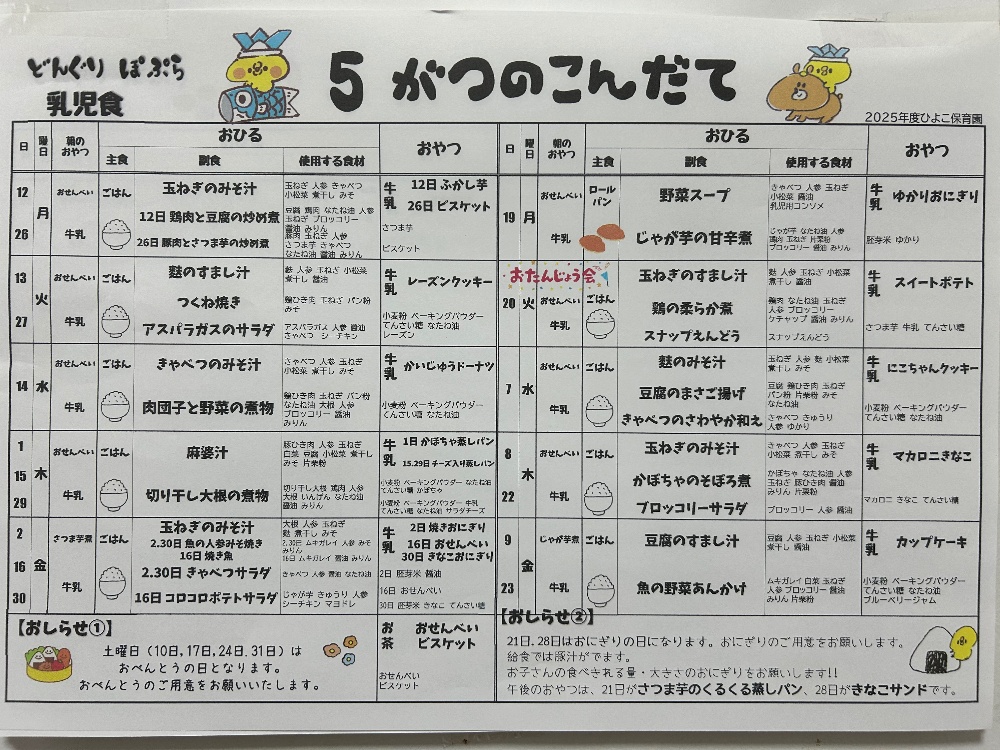 どんぐり ぽぷら
乳児食
5 がつのこんだて
2025年度ひよこ保育園
日 曜日 朝のおやつ おひる おやつ
主食 副食 使用する食材
12 月 26
おせんべい 牛乳
ごはん
玉ねぎのみそ汁
12日 鶏肉と豆腐の炒め煮
26日 豚肉とさつま芋の炒め煮
玉ねぎ 人参 きゃべつ
小松菜 煮干し みそ
豆腐 鶏肉 なたね油 人参
玉ねぎ ブロッコリー
醤油 みりん
豚肉 玉ねぎ 人参
さつま芋 きゃべつ
なたね油 醤油 みりん
牛乳
12日 ふかし芋
26日 ビスケット
さつま芋
ビスケット
13 火 27
おせんべい 牛乳
ごはん
麩のすまし汁
つくね焼き
アスパラガスのサラダ
麩 人参 玉ねぎ 小松菜
煮干し 醤油
鶏ひき肉 玉ねぎ パン粉
みりん 醤油
アスパラガス 人参 醤油
きゃべつ シーチキン
牛乳
レーズンクッキー
小麦粉 ベーキングパウダー
てんさい糖 なたね油
レーズン
14 水
おせんべい 牛乳
ごはん
きゃべつのみそ汁
肉団子と野菜の煮物
きゃべつ 人参 玉ねぎ
小松菜 煮干し みそ
鶏ひき肉 玉ねぎ パン粉
なたね油 大根 人参
ブロッコリー 醤油
みりん
牛乳
かいじゅうドーナツ
小麦粉 ベーキングパウダー
てんさい糖 なたね油
1 15 木 29
おせんべい 牛乳
ごはん
麻婆汁
切り干し大根の煮物
豚ひき肉 人参 玉ねぎ
白菜 豆腐 小松菜 煮干し
みそ 片栗粉
切り干し大根 鶏肉 人参
大根 いんげん なたね油
醤油 みりん
牛乳
1日 かぼちゃ蒸しパン
15.29日 チーズ入り蒸しパン
小麦粉 ベーキングパウダー なたね油
てんさい糖 かぼちゃ
小麦粉 ベーキングパウダー 牛乳
てんさい糖 なたね油 サラダチーズ
2 16 金 30
さつま芋煮 牛乳
ごはん
玉ねぎのみそ汁
2.30日 魚の人参みそ焼き
16日 焼き魚
2.30日 きゃべつサラダ
16日 コロコロポテトサラダ
大根 人参 玉ねぎ
麩 煮干し みそ
2.30日 ムキガレイ 人参 みそ
みりん
16日 ムキガレイ 醤油 みりん
きゃべつ 人参 醤油 なたね油
じゃが芋 きゅうり 人参
シーチキン マヨドレ
牛乳
2日 焼きおにぎり
16日 おせんべい
30日 きなこおにぎり
2日 胚芽米 醤油
16日 おせんべい
30日 胚芽米 きなこ てんさい糖
【おしらせ①】
土曜日（10日,17日,24日,31日）は
おべんとうの日となります。
おべんとうのご用意をお願いいたします。
お茶
おせんべい
ビスケット
おせんべい
ビスケット
日 曜日 朝のおやつ おひる おやつ
主食 副食 使用する食材
19 月
おせんべい 牛乳
ロールパン
野菜スープ
じゃが芋の甘辛煮
きゃべつ 人参 玉ねぎ
小松菜 醤油
乳児用コンソメ
じゃが芋 なたね油 人参
鶏肉 玉ねぎ 片栗粉
ブロッコリー 醤油 みりん
牛乳
ゆかりおにぎり
胚芽米 ゆかり
おたんじょう会
20 火
おせんべい 牛乳
ごはん
玉ねぎのすまし汁
鶏の柔らか煮
スナップえんどう
麩 人参 玉ねぎ 小松菜
煮干し 醤油
鶏肉 なたね油 玉ねぎ
人参 ブロッコリー
ケチャップ 醤油 みりん
スナップえんどう
牛乳
スイートポテト
さつま芋 牛乳 てんさい糖
7 水
おせんべい 牛乳
ごはん
麩のみそ汁
豆腐のまさご揚げ
きゃべつのさわやか和え
玉ねぎ 人参 麩 小松菜
煮干し みそ
豆腐 鶏ひき肉 玉ねぎ
パン粉 片栗粉 みそ
なたね油
きゃべつ きゅうり
人参 ゆかり
牛乳
にこちゃんクッキー
小麦粉 ベーキングパウダー
てんさい糖 なたね油
8 木 22
おせんべい 牛乳
ごはん
玉ねぎのみそ汁
かぼちゃのそぼろ煮
ブロッコリーサラダ
きゃべつ 人参 玉ねぎ
小松菜 煮干し みそ
かぼちゃ なたね油 人参
玉ねぎ 豚ひき肉 醤油
みりん 片栗粉
ブロッコリー 人参 醤油
牛乳
マカロニきなこ
マカロニ きなこ てんさい糖
9 金 23
じゃが芋煮 牛乳
ごはん
豆腐のすまし汁
魚の野菜あんかけ
豆腐 人参 玉ねぎ 小松菜
煮干し 醤油
ムキガレイ 白菜 玉ねぎ
人参 ブロッコリー 醤油
みりん 片栗粉
牛乳
カップケーキ
小麦粉 ベーキングパウダー
てんさい糖 なたね油
ブルーベリージャム
【おしらせ②】
21日,28日はおにぎりの日になります。おにぎりのご用意をお願いします。
給食では豚汁がでます。
お子さんの食べきれる量・大きさのおにぎりをお願いします!!
午後のおやつは、21日がさつま芋のくるくる蒸しパン、28日がきなこサンドです。